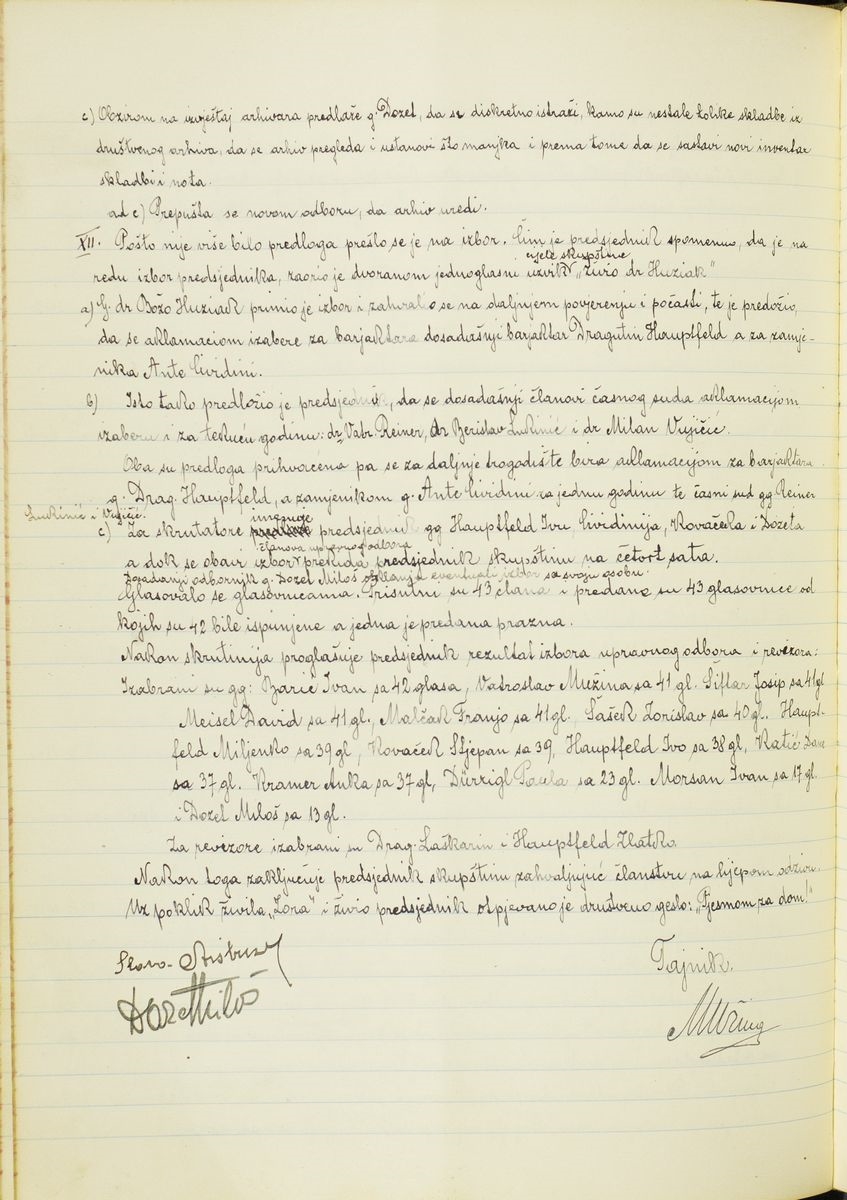 c) Obzirom na izvještaj arhivara predlaže g. Dozet, da se diskretno istraži, kamo su nestale tolike skladbe iz
društvenog arhiva, da se arhiv pregleda i ustanovi što manjka i prema tome da se sastavi novi inventar
skladbi i nota.
ad c) Prepušta se novom odboru, da arhiv uredi.
XII. Pošto nije više bilo predloga prešlo se je na izbor. Čim je predsjednik spomenuo, da je na
cijele skupštine
redu izbor predsjednika, zaorio je dvoranom jednoglasni uzvik „Živio dr Huziak"
a) G. dr Božo Huziak primio je izbor i zahvalio se na daljnjem povjerenju i počasti, te je predložio,
da se aklamaciom izabere za barjaktara dosadašnji barjaktar Dragutin Hauptfeld a za zamje-
nika Ante Cividini.
b) Isto tako predložio je predsjednik, da se dosadašnji članovi časnog suda aklamacijom
izaberu i za tekuću godinu: dr Vatr. Reiner, dr Berislav Lukinić i dr Milan Vujičić.
Oba su predloga prihvaćena pa se za daljnje trogodište bira aklamacijom za barjaktara
g. Drag. Hauptfeld, a zamjenikom g. Ante Cividini za jednu godinu te časni sud gg Reiner
Lukinić i Vujičić.
imenuje
c) Za skrutatore predsjednik gg Hauptfeld Ivu, Cividinija, Kovačeka i Dozeta
članova upravnog odbora
a dok se obavi izbor prekida predsjednik skupštinu na četvrt sata.
Dosadanji odbornik g. Dozet Miloš otklanja eventualni izbor za svoju osobu.
Glasovalo se glasovnicama. Prisutni su 43 člana i predane su 43 glasovnice od
kojih su 42 bile ispunjene a jedna je predana prazna.
Nakon skrutinija proglašuje predsjednik rezultat izbora upravnog odbora i revizora:
Izabrani su gg: Barić Ivan sa 42 glasa, Vatroslav Mužina sa 41 gl. Šiftar Josip sa 41 gl
Meisel David sa 41 gl., Malčak Franjo sa 41 gl. Šašek Zorislav sa 40 gl. Haupt-
feld Miljenko sa 39 gl, Kovaček Stjepan sa 39, Hauptfeld Ivo sa 38 gl, Katić Dane
sa 37 gl. Kramer Anka sa 37 gl, Dürrigl Paula sa 23 gl. Morsan Ivan sa 17 gl.
i Dozet Miloš sa 13 gl.
Za revizore izabrani su Drag. Laškarin i Hauptfeld Zlatko.
Nakon toga zaključuje predsjednik skupštinu zahvaljujuć članstvu na lijepom odzivu.
Uz poklik živila „Zora" i živio predsjednik otpjevano je društveno geslo: „Pjesmom za dom!"
Tajnik.
Dozet Miloš
Mužina